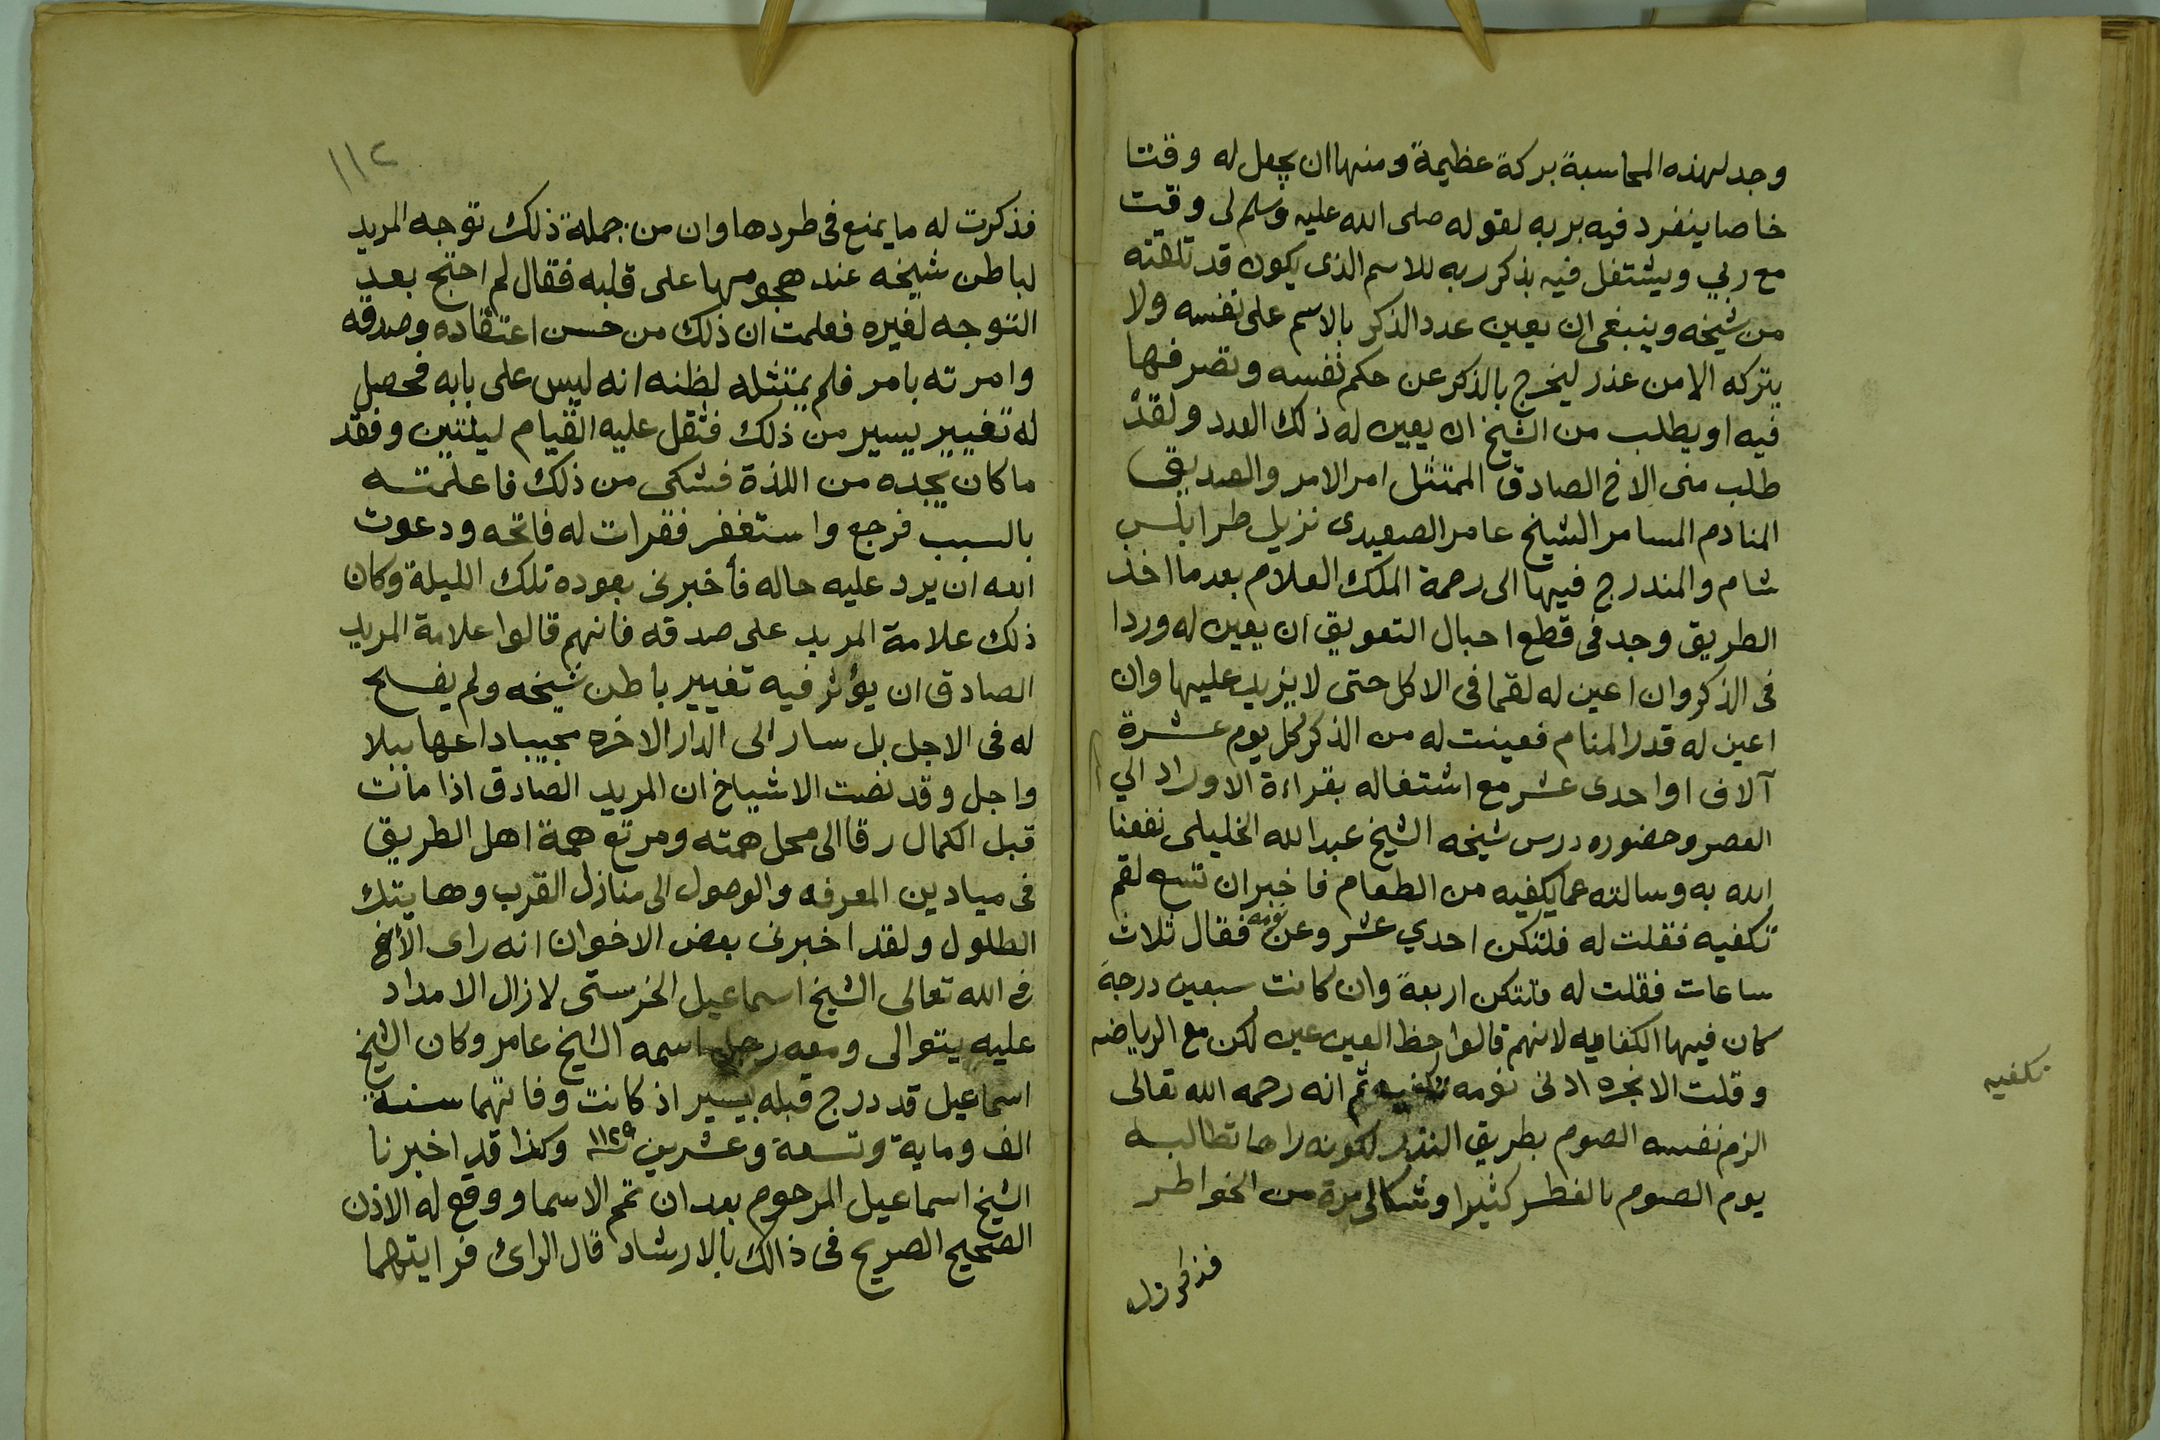 وجد لهذه المحاسبة بركة عظيمة ومنها ان يجعل له وقتا
خاصا ينفرد فيه بربه لقوله صلى الله عليه وسلم لى وقت
مع ربي ويشتغل فيه بذكر ربه للاسم الذى يكون قد تلقنه
من شيخه وينبغى ان يعين عدد الذكر بالاسم على نفسه ولا
يتركه الا من عذر ليخرج بالذكر عن حكم نفسه وتصرفها
فيه او يطلب من الشيخ ان يعين له ذلك العدد ولقد
طلب منى الاخ الصادق الممتثل امر الامر والصديق
المنادم المسامر الشيخ عامر الصعيدى نزيل طرابلس
شام والمندرج فيها الى رحمة الملك العلام بعدما اخذ
الطريق وجد فى قطع احبال التعويق ان يعين له وردا
فى الذكر وان اعين له لقما فى الاكل حتى لا يزيد عليها وان
اعين له قدر المنام فعينت له من الذكر لكل يوم عشرة
آلاف او احدى عشر مع اشتغاله بقراءة الاوراد الي
العصر وحضوره درس شيخه الشيخ عبد الله الخليلى نفعنا
الله به وسالته عما يكفيه من الطعام فاخبر ان تسع لقم
تكفيه فقلت له فلتكن احدي عشر وعن نومه فقال ثلاث
ساعات فقلت له فلتكن اربعة وان كانت سبعين درجة
كان فيها الكفايه لانهم قالوا حظ العين عين لكن مع الرياضه
وقلت الابخره ادنى نومه تكفيه ثم انه رحمه الله تعالى
تكفيه
الزم نفسه الصوم بطريق النذر لكونه راها تطالبه
يوم الصوم بالفطر كثيرا وشكا لى مرة من الخواطر
فذكرت له
١١٢
فذكرت له ما يمنع فى طردها وان من جملة ذلك توجه المريد
لباطن شيخه عند هجومها على قلبه فقال لم احتج بعد
التوجه لغيره فعلمت ان ذلك من حسن اعتقاده وصدقه
وامرته بامر فلم يمتثله لظنه انه ليس على بابه فحصل
له تغيير يسير من ذلك فثقل عليه القيام ليلتين وفقد
ما كان يجده من اللذة فشكى من ذلك فاعلمته
بالسبب فرجع واستغفر فقرات له فاتحه ودعوت
الله ان يرد عليه حاله فأخبرنى بعوده تلك الليلة وكان
ذلك علامة المريد على صدقه فانهم قالوا علامة المريد
الصادق ان يؤثر فيه تغيير باطن شيخه ولم يفسح
له فى الاجل بل سار الى الدار الاخره مجيبا داعها ببلا
واجل وقد نصت الاشياخ ان المريد الصادق اذا مات
قبل الكمال رقا الى محل همته ومرتع همة اهل الطريق
فى ميادين المعرفه والوصول الى منازل القرب وهاتيك
الطلول ولقد اخبرنى بعض الاخوان انه راى الأخ
فى الله تعالى الشيخ اسماعيل الخرستى لازال الامداد
عليه يتوالى ومعه رجل اسمه الشيخ عامر وكان الشيخ
اسماعيل قد درج قبله بيسير اذ كانت وفاتهما سنة
الف وماية وتسعة وعشرين ١١٢٩ وكذا قد اخبرنا
الشيخ اسماعيل المرحوم بعد ان تمم الاسما ووقع له الاذن
الصحيح الصريح فى ذالك بالارشاد قال الرائ فرايتهما